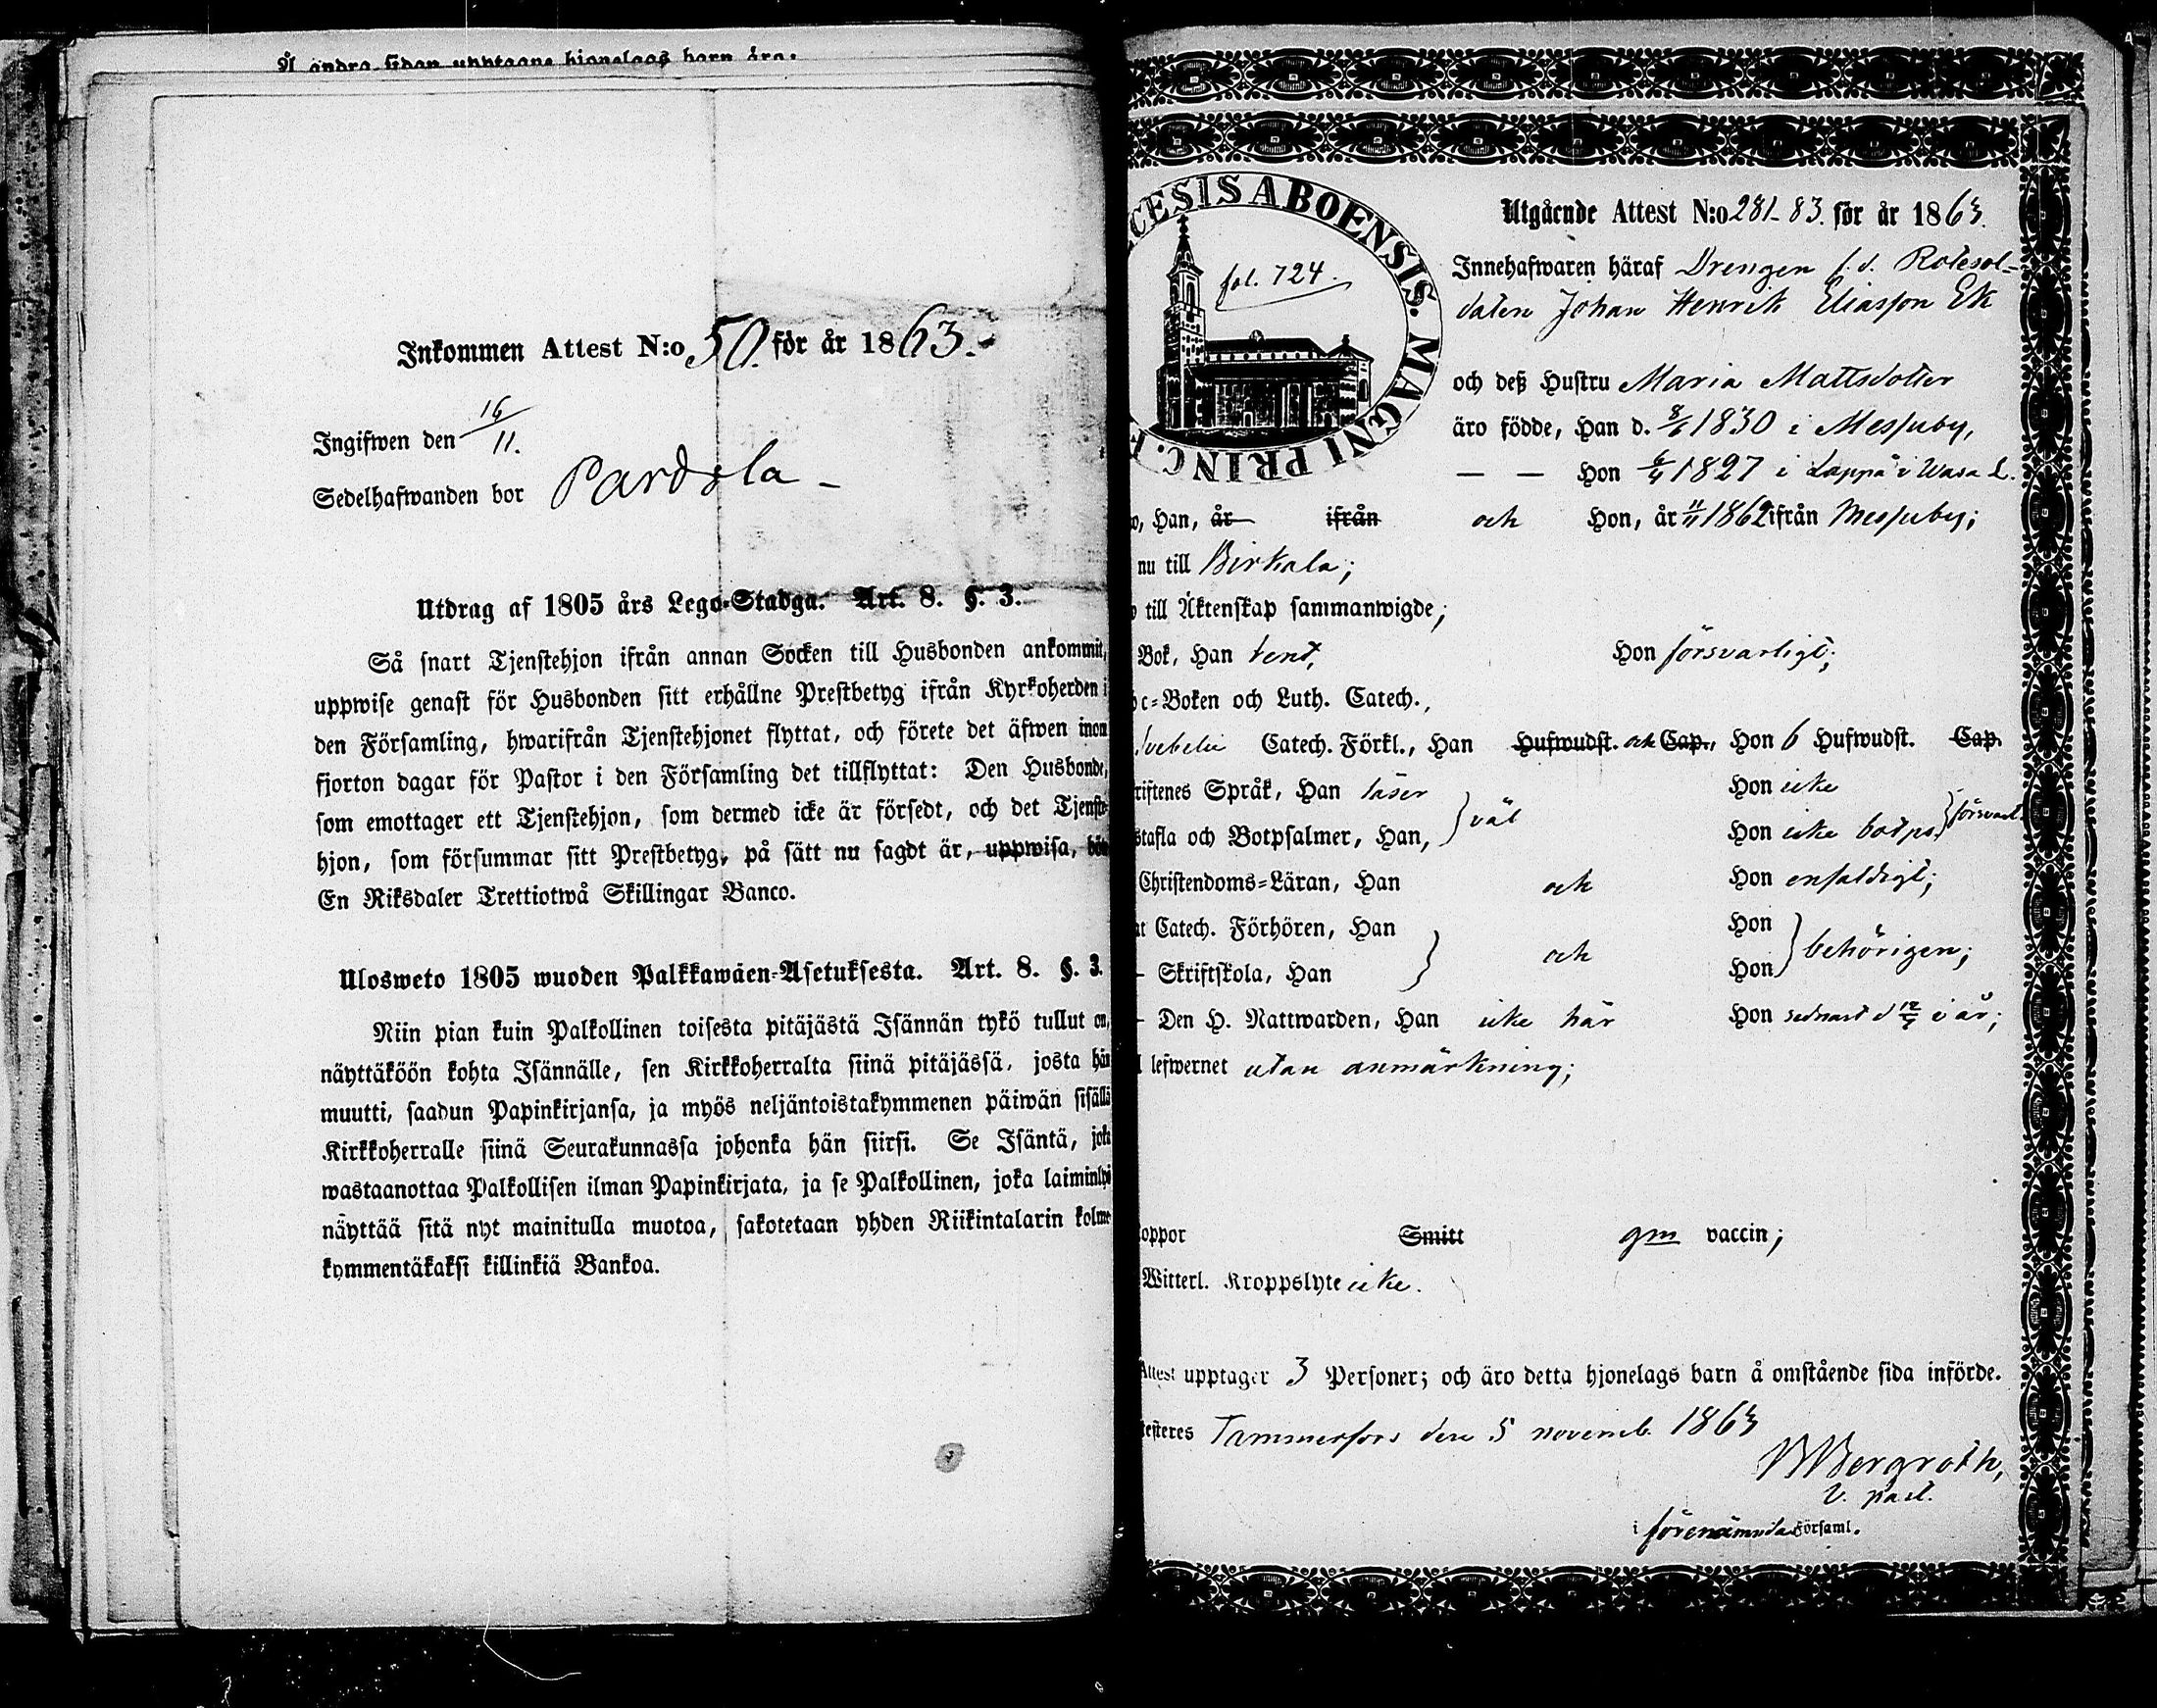 Å andra sidan upptagne hjonelags barn äro:
Inkommen Attest N:o 50. för år 1863.
Ingifwen den 16/11.
Sedelhafwanden bor Pardola
Utdrag af 1805 års Lego-Stadga. Art. 8. §. 3.
Så snart Tjenstehjon ifrån annan Socken till Husbonden ankommit,
uppwise genast för Husbonden sitt erhållne Prestbetyg ifrån Kyrkoherden i
den Församling, hwarifrån Tjenstehjonet flyttat, och förete det äfwen inom
fjorton dagar för Pastor i den Församling det tillflyttat: Den Husbonde,
som emottager ett Tjenstehjon, som dermed icke är försedt, och det Tjenste-
hjon, som försummar sitt Prestbetyg, på sätt nu sagdt är, uppwisa, böte
En Riksdaler Trettiotwå Skillingar Banco.
Ulosweto 1805 wuoden Palkkawäen-Asetuksesta. Art. 8. §. 3.
Niin pian kuin Palkollinen toisesta pitäjästä Isännän tykö tullut on,
näyttäköön kohta Isännälle, sen Kirkkoherralta siinä pitäjässä, josta hän
muutti, saadun Papinkirjansa, ja myös neljäntoistakymmenen päiwän sisällä
Kirkkoherralle siinä Seurakunnassa johonka hän siirsi. Se Isäntä, joka
wastaanottaa Palkollisen ilman Papinkirjata, ja se Palkollinen, joka laiminlyö
näyttää sitä nyt mainitulla muotoa, sakotetaan yhden Riikintalarin kolme-
kymmentäkaksi killinkiä Bankoa.
CESIS ABOENSIS. MAGNI PRINC. F
fol. 724.
Utgående Attest N:o 281-83. för år 1863.
Innehafwaren häraf Drengen f.d. Rotesol-
daten Johan Henrik Eliasson Ek
och deß Hustru Maria Mattsdotter
äro födde, Han d. 8/6 1830 i Messuby,
— — Hon 6/4 1827 i Lappo i Wasa L.
, Han, år ifrån och Hon, år 11/11 1862 ifrån Messuby;
nu till Birkala;
till Äktenskap sammanwigde;
Bok, Han Hon försvarligt;
c-Boken och Luth. Catech.,
Svebelii Catech. Förkl., Han Hufwudst. och Cap., Hon 6 Hufwudst. Cap.
riftenes Språk, Han läser Hon icke
stafla och Botpsalmer, Han, } väl Hon icke botps. } försvarl.
Christendoms-Läran, Han och Hon enfaldigt;
at Catech. Förhören, Han Hon
- Skriftskola, Han } och Hon } behörigen;
- Den H. Nattwarden, Han icke här Hon sednast d 12/7 i år;
l lefwernet utan anmärkning;
oppor Smitt gm vaccin;
Witterl. Kroppslyte icke.
Attest upptager 3 Personer; och äro detta hjonelags barn å omstående sida införde.
testeres Tammerfors den 5 novemb. 1863
Bergroth,
v. past.
i förenämnda Församl.